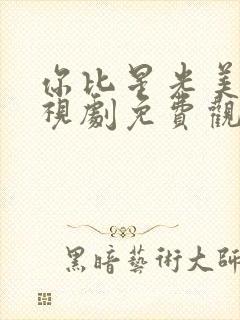 你比星光美
視劇免費觀
黑暗藝術大師